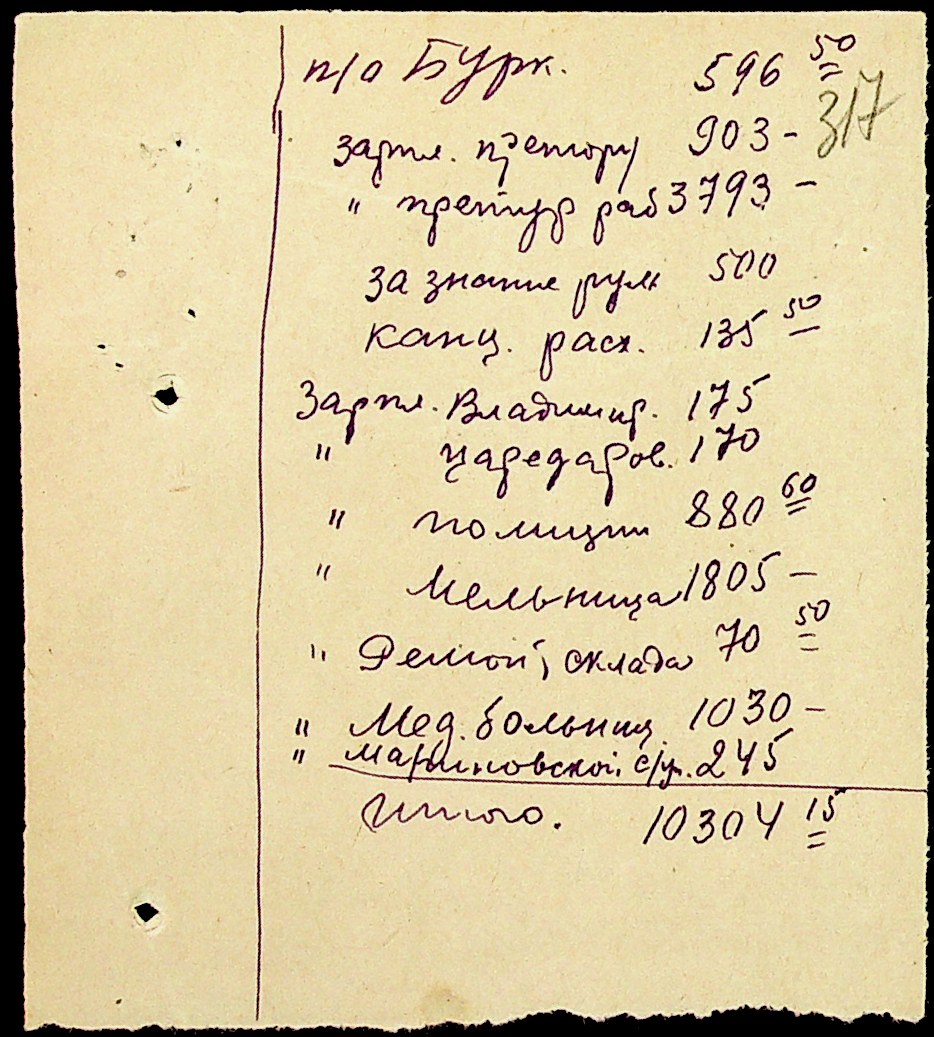 п/о Бурк. 596 50
317
зарпл. претору 903 -
" претур раб 3793 -
за знание рум 500
канц. расх. 135 50
Зарпл. Владимир. 175
" 170
" полиции 880 60
" Мельница 1805 -
" Ремонт, склада 70 50
" Мед. больниц. 1030 -
" Мариновской с/уп. 245
Итого. 10304 15